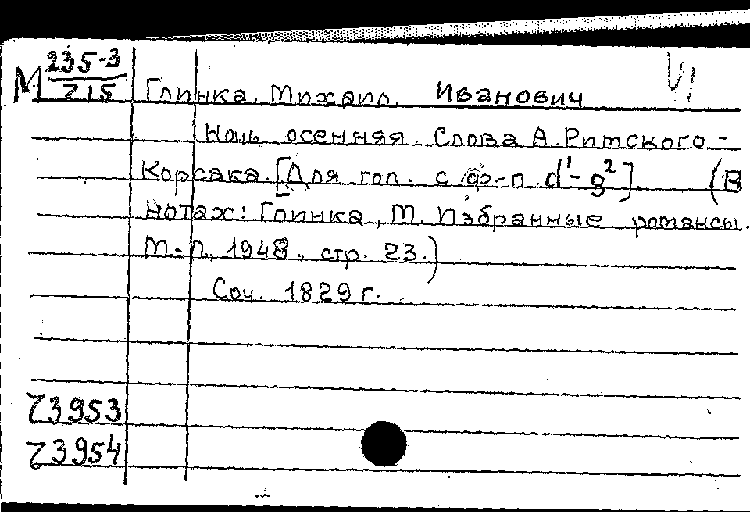 М 235-3
215
Глинка, Михаил Иванович VI
Ночь осенняя. Слова А. Римского-
Корсака. [Для гол. с ф-п. d¹-g²] (В
нотах: Глинка, М. Избранные романсы.
М.-Л., 1948, стр. 23.)
Соч. 1829 г.
73953
73954